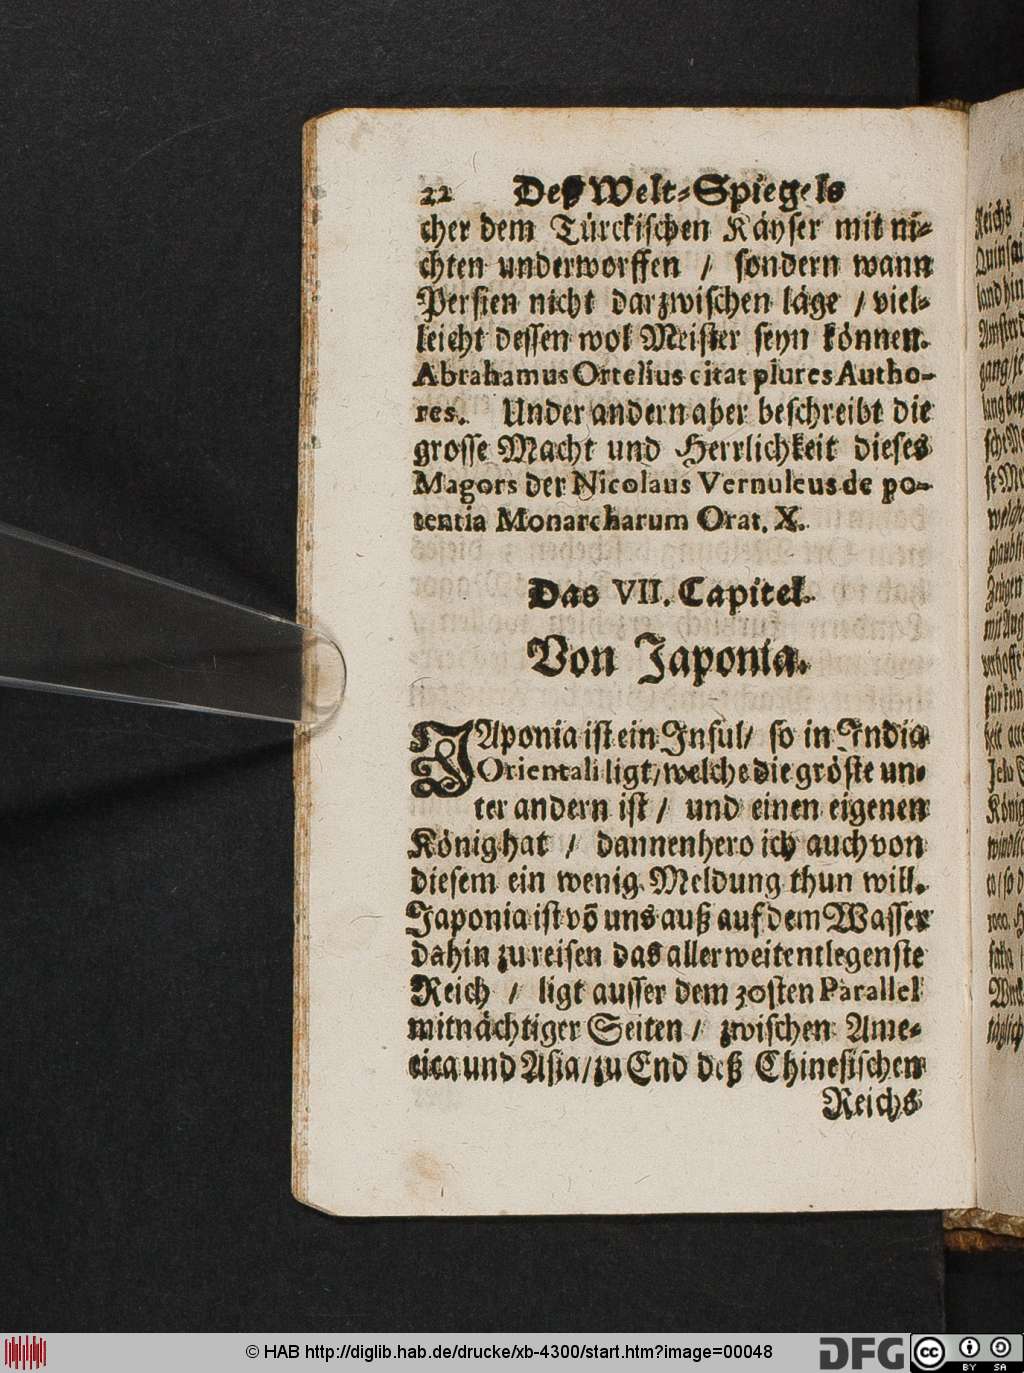 22 Deß Welt-Spiegels
cher dem Türckischen Käyser mit ni-
chten underworffen / sondern wann
Persien nicht darzwischen läge / viel-
leicht dessen wol Meister seyn können.
Abrahamus Ortelius citat plures Autho-
res. Under andern aber beschreibt die
grosse Macht und Herrlichkeit dieses
Magors der Nicolaus Vernuleus de po-
tentia Monarcharum Orat. X.
Das VII. Capitel.
Von Japonia.
JAponia ist ein Insul/ so in India
Orientali ligt/ welche die gröste un-
ter andern ist / und einen eigenen
König hat / dannenhero ich auch von
diesem ein wenig Meldung thun will.
Japonia ist võ uns auß auf dem Wasser
dahin zu reisen das allerweitentlegenste
Reich / ligt ausser dem 30sten Parallel
mitnächtiger Seiten / zwischen Ame-
rica und Asia/ zu End deß Chinesischen
Reichs
Reichs
Quinsai
land hin
Amsterd
gang/ je
lang bey
sche Me
se Me
welche
glaubli
Zeugen
mit Aug
verhoffe
für kein
heit aus
Jedo
König
© HAB http://diglib.hab.de/drucke/xb-4300/start.htm?image=00048
DFG
cc BY SA